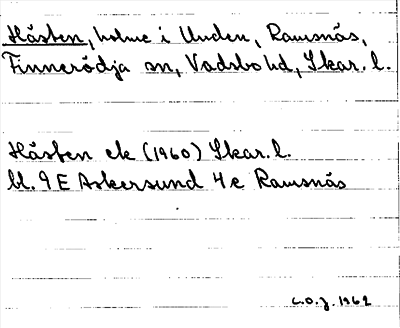 Håsten, holme i Unden, Ramsnäs,
Finnerödja sn, Vadsbo hd, Skar. l.
Håsten ek (1960) Skar. l.
bl. 9 E Askersund 4 e Ramsnäs
C.O.J. 1962